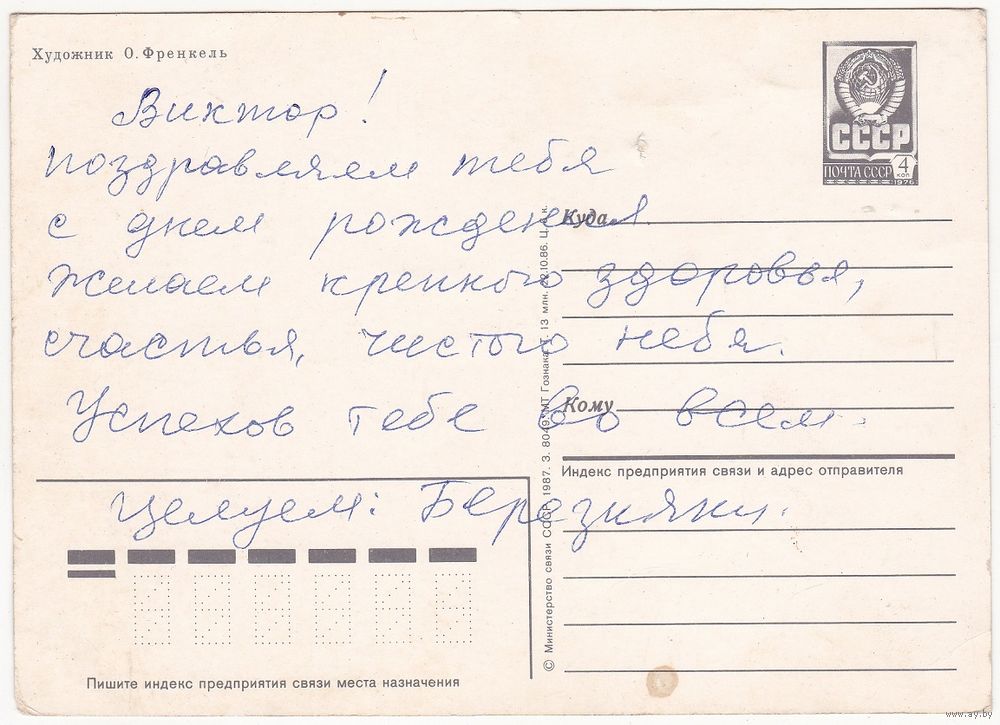 Художник О. Френкель
Виктор!
поздравляем тебя
с днем рождения.
желаем крепкого здоровья,
счастья, чистого неба.
Успехов тебе во всем.
Целуем: Березняки.
СССР
ПОЧТА СССР 4 коп
1976
Куда
Кому
Индекс предприятия связи и адрес отправителя
Пишите индекс предприятия связи места назначения
© Министерство связи СССР, 1987. З. 8049. МТ Гознака. Т. 13 млн. 10.86. Ц. к.
www.ay.by